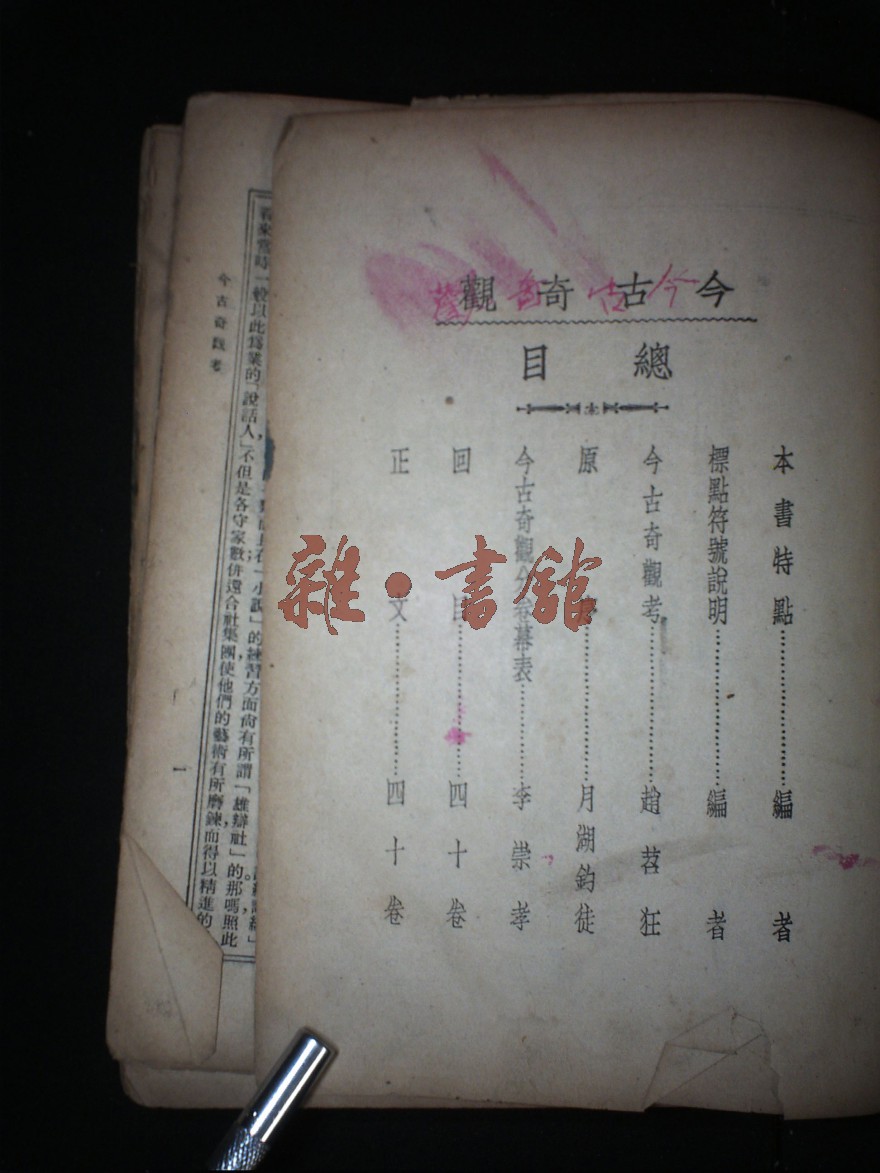 今古奇觀
今古奇
總目
本書特點……………編者
標點符號說明……………編者
今古奇觀考……………趙苕狂
原序……………月湖鈞徒
今古奇觀分卷幕表……………李崇孝
回目……………四十卷
正文……………四十卷
雜·書館
的練習方面尚有所謂「雄辯社」的那嗎照此
看來當時一般以此爲業的「說話人」不但是各守家數併還合社集團使他們的藝術有所磨鍊而得以精進的
今古奇觀考
一